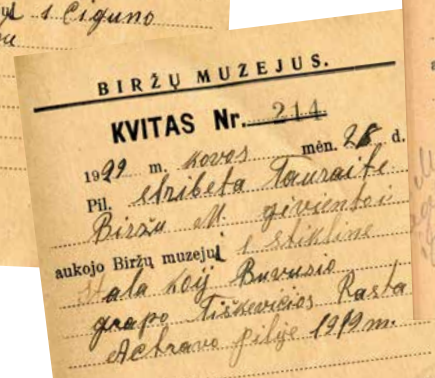 1 Ciguno
BIRŽŲ MUZEJUS.
KVITAS Nr. 214
m. kovos mėn. 28 d.
Pil. elzibeta Tauraitė
Biržu M givientoi
aukojo Biržų muzejui 1 stiklinė
stala koij Buvusio
grapo Tiškevičios Rasta
Actravo pilije 1919 m.